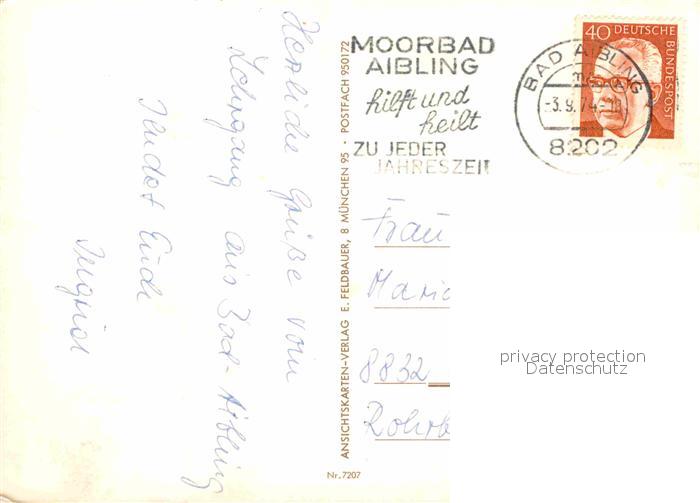 Herzliche Grüße vom
Lehrgang aus Bad-Aibling
sendet Euch
Ingrid
ANSICHTSKARTEN-VERLAG E. FELDBAUER, 8 MÜNCHEN 95 · POSTFACH 950172
Nr. 7207
MOORBAD
AIBLING
hilft und
heilt
ZU JEDER
JAHRESZEIT
BAD AIBLING
-3.9.74-18
8202
40 DEUTSCHE
BUNDESPOST
Frau
Maria
8832
Rohrb
privacy protection
Datenschutz